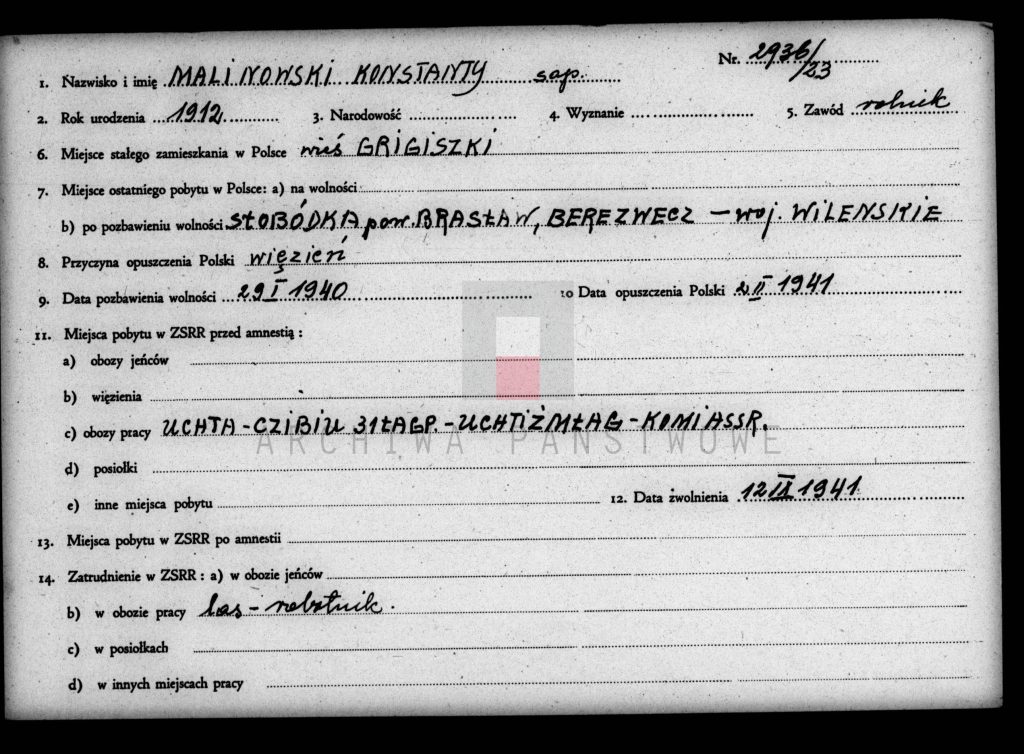 Nr. 2936/23
1. Nazwisko i imię MALINOWSKI KONSTANTY sap.
2. Rok urodzenia 1912 3. Narodowość 4. Wyznanie 5. Zawód rolnik
6. Miejsce stałego zamieszkania w Polsce wieś GRIGISZKI
7. Miejsce ostatniego pobytu w Polsce: a) na wolności
b) po pozbawieniu wolności SŁOBÓDKA pow. BRASŁAW, BEREZWECZ – woj. WILENSKIE
8. Przyczyna opuszczenia Polski więzień
9. Data pozbawienia wolności 29 I 1940 10 Data opuszczenia Polski 2 II 1941
11. Miejsca pobytu w ZSRR przed amnestią :
a) obozy jeńców
b) więzienia
c) obozy pracy UCHTA - CZIBIU 31 ŁAGP. - UCHTIŻMŁAG - KOMI ASSR.
ARCHIWA PAŃSTWOWE
d) posiołki
e) inne miejsca pobytu 12. Data zwolnienia 12 IX 1941
13. Miejsca pobytu w ZSRR po amnestii
14. Zatrudnienie w ZSRR : a) w obozie jeńców
b) w obozie pracy las - robotnik.
c) w posiołkach
d) w innych miejscach pracy